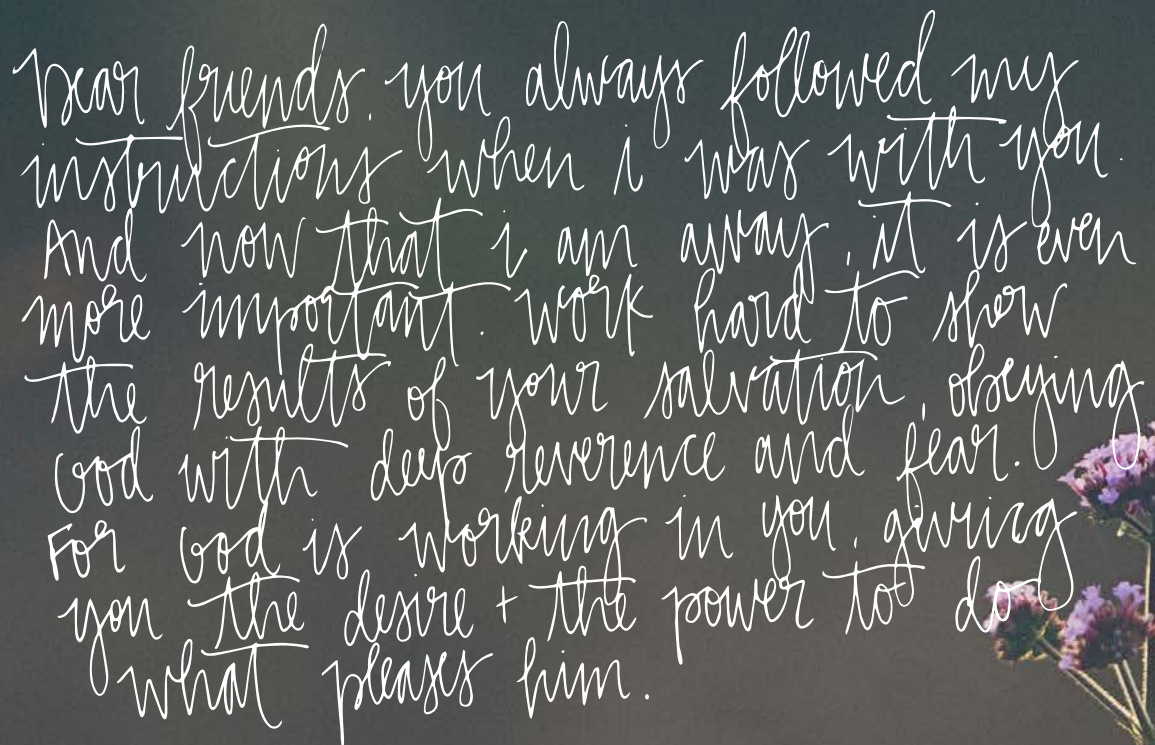 Dear friends, you always followed my
instructions when i was with you.
And now that i am away, it is even
more important. Work hard to show
the results of your salvation, obeying
God with deep reverence and fear.
For God is working in you, giving
you the desire + the power to do
what pleases him.